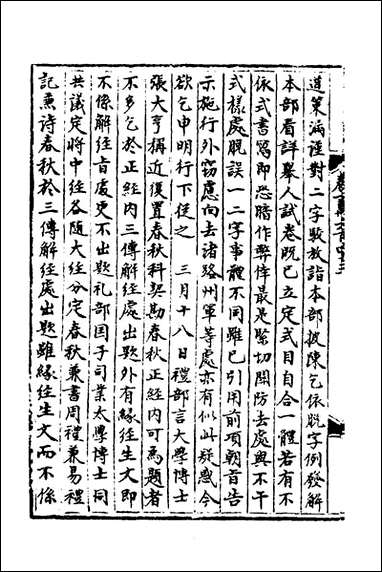 道策漏謹對二字數敖詣本部披陳乞依脫字例發解
本部看詳舉人試卷既已立定式目自合一體若有不
依式書寫即恐暗作弊倖最是緊切關防去處與不干
式樣處脫誤一二字事體不同雖已引用前項朝旨告
示施行外竊慮向去諸路州軍等處亦有似此疑惑今
欲乞申明行下從之 三月十八日禮部言大學博士
張大亨稱近復置春秋科契勘春秋正經內可為題者
不多乞於正經內三傳解經處出題外有緣經生文即
不係解經旨處更不出題礼部國子司業太學博士同
共議定將中經各隨大經分定春秋兼書周禮兼易禮
記兼詩春秋於三傳解經處出題雖緣經生文而不係